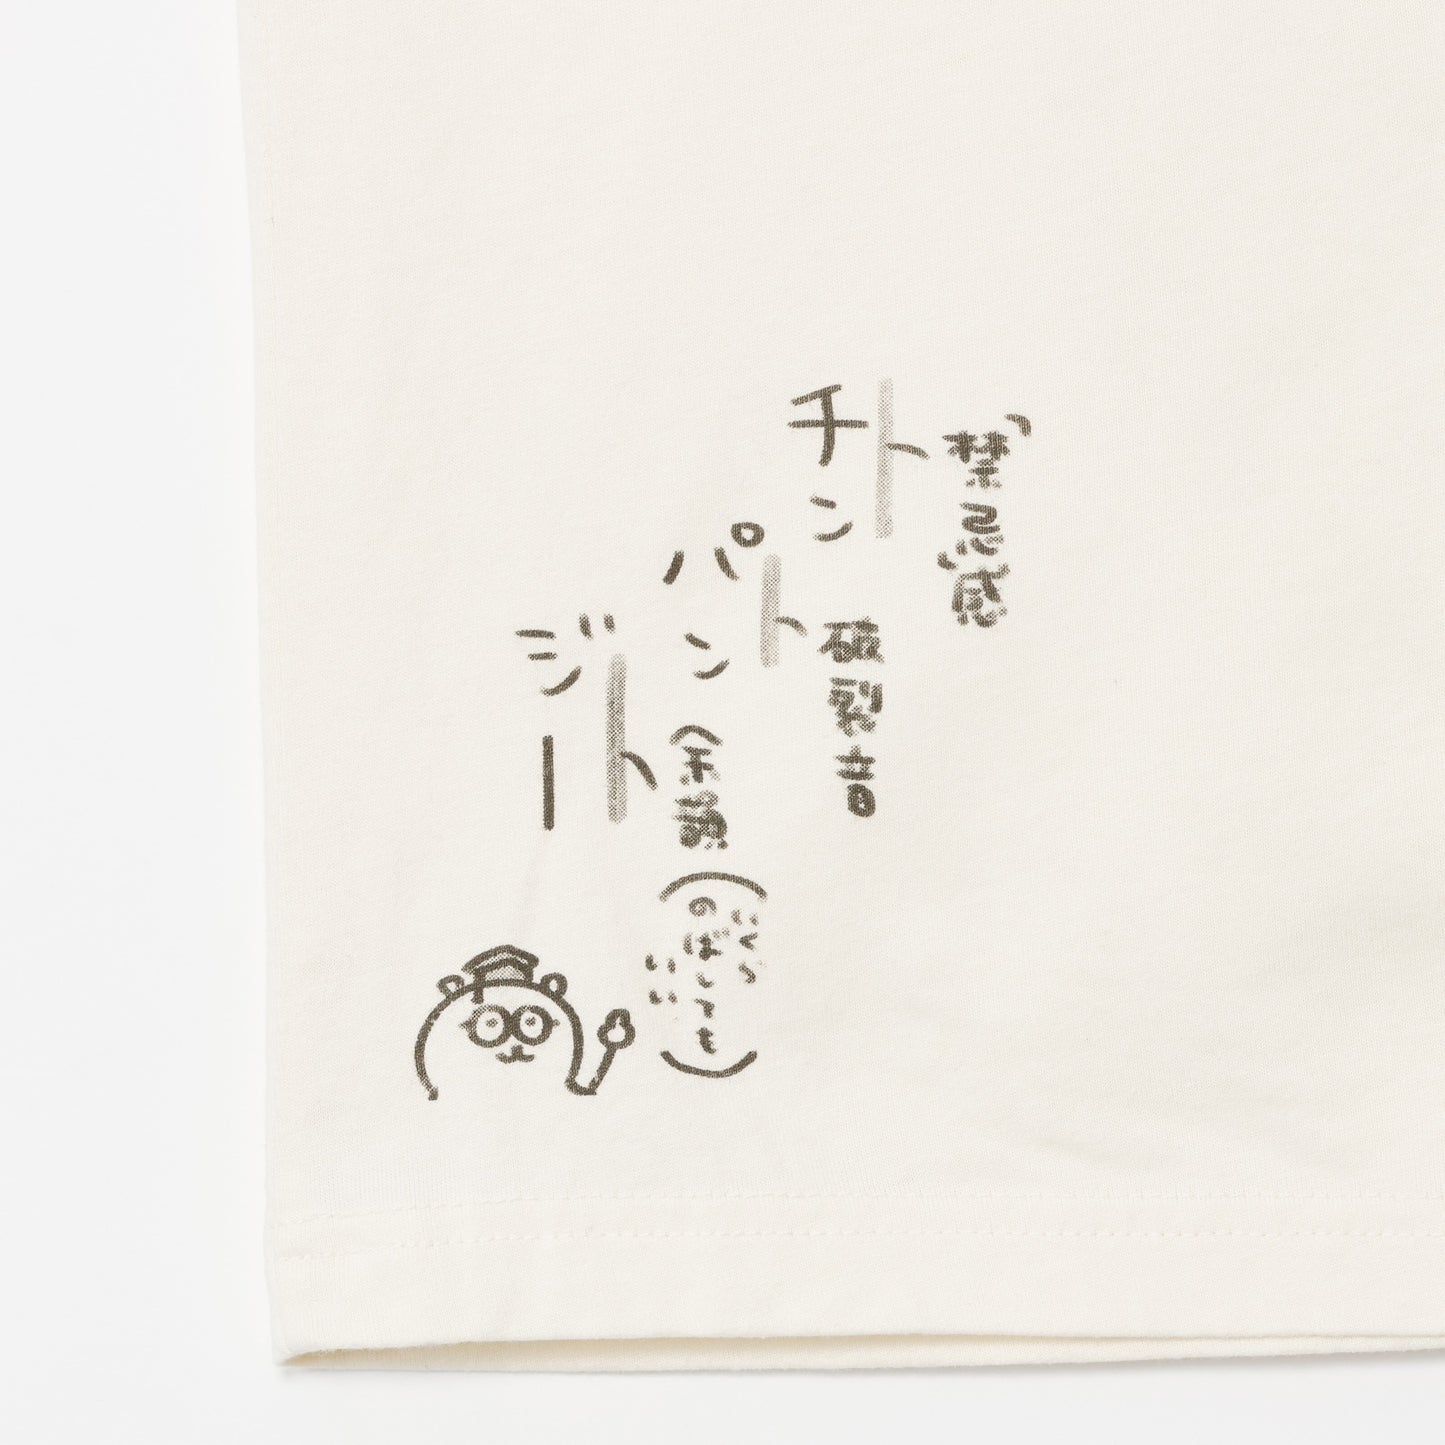 チン
“禁忌”感
パン
破裂音
ジー
余韻
(いくらのばしてもいい)